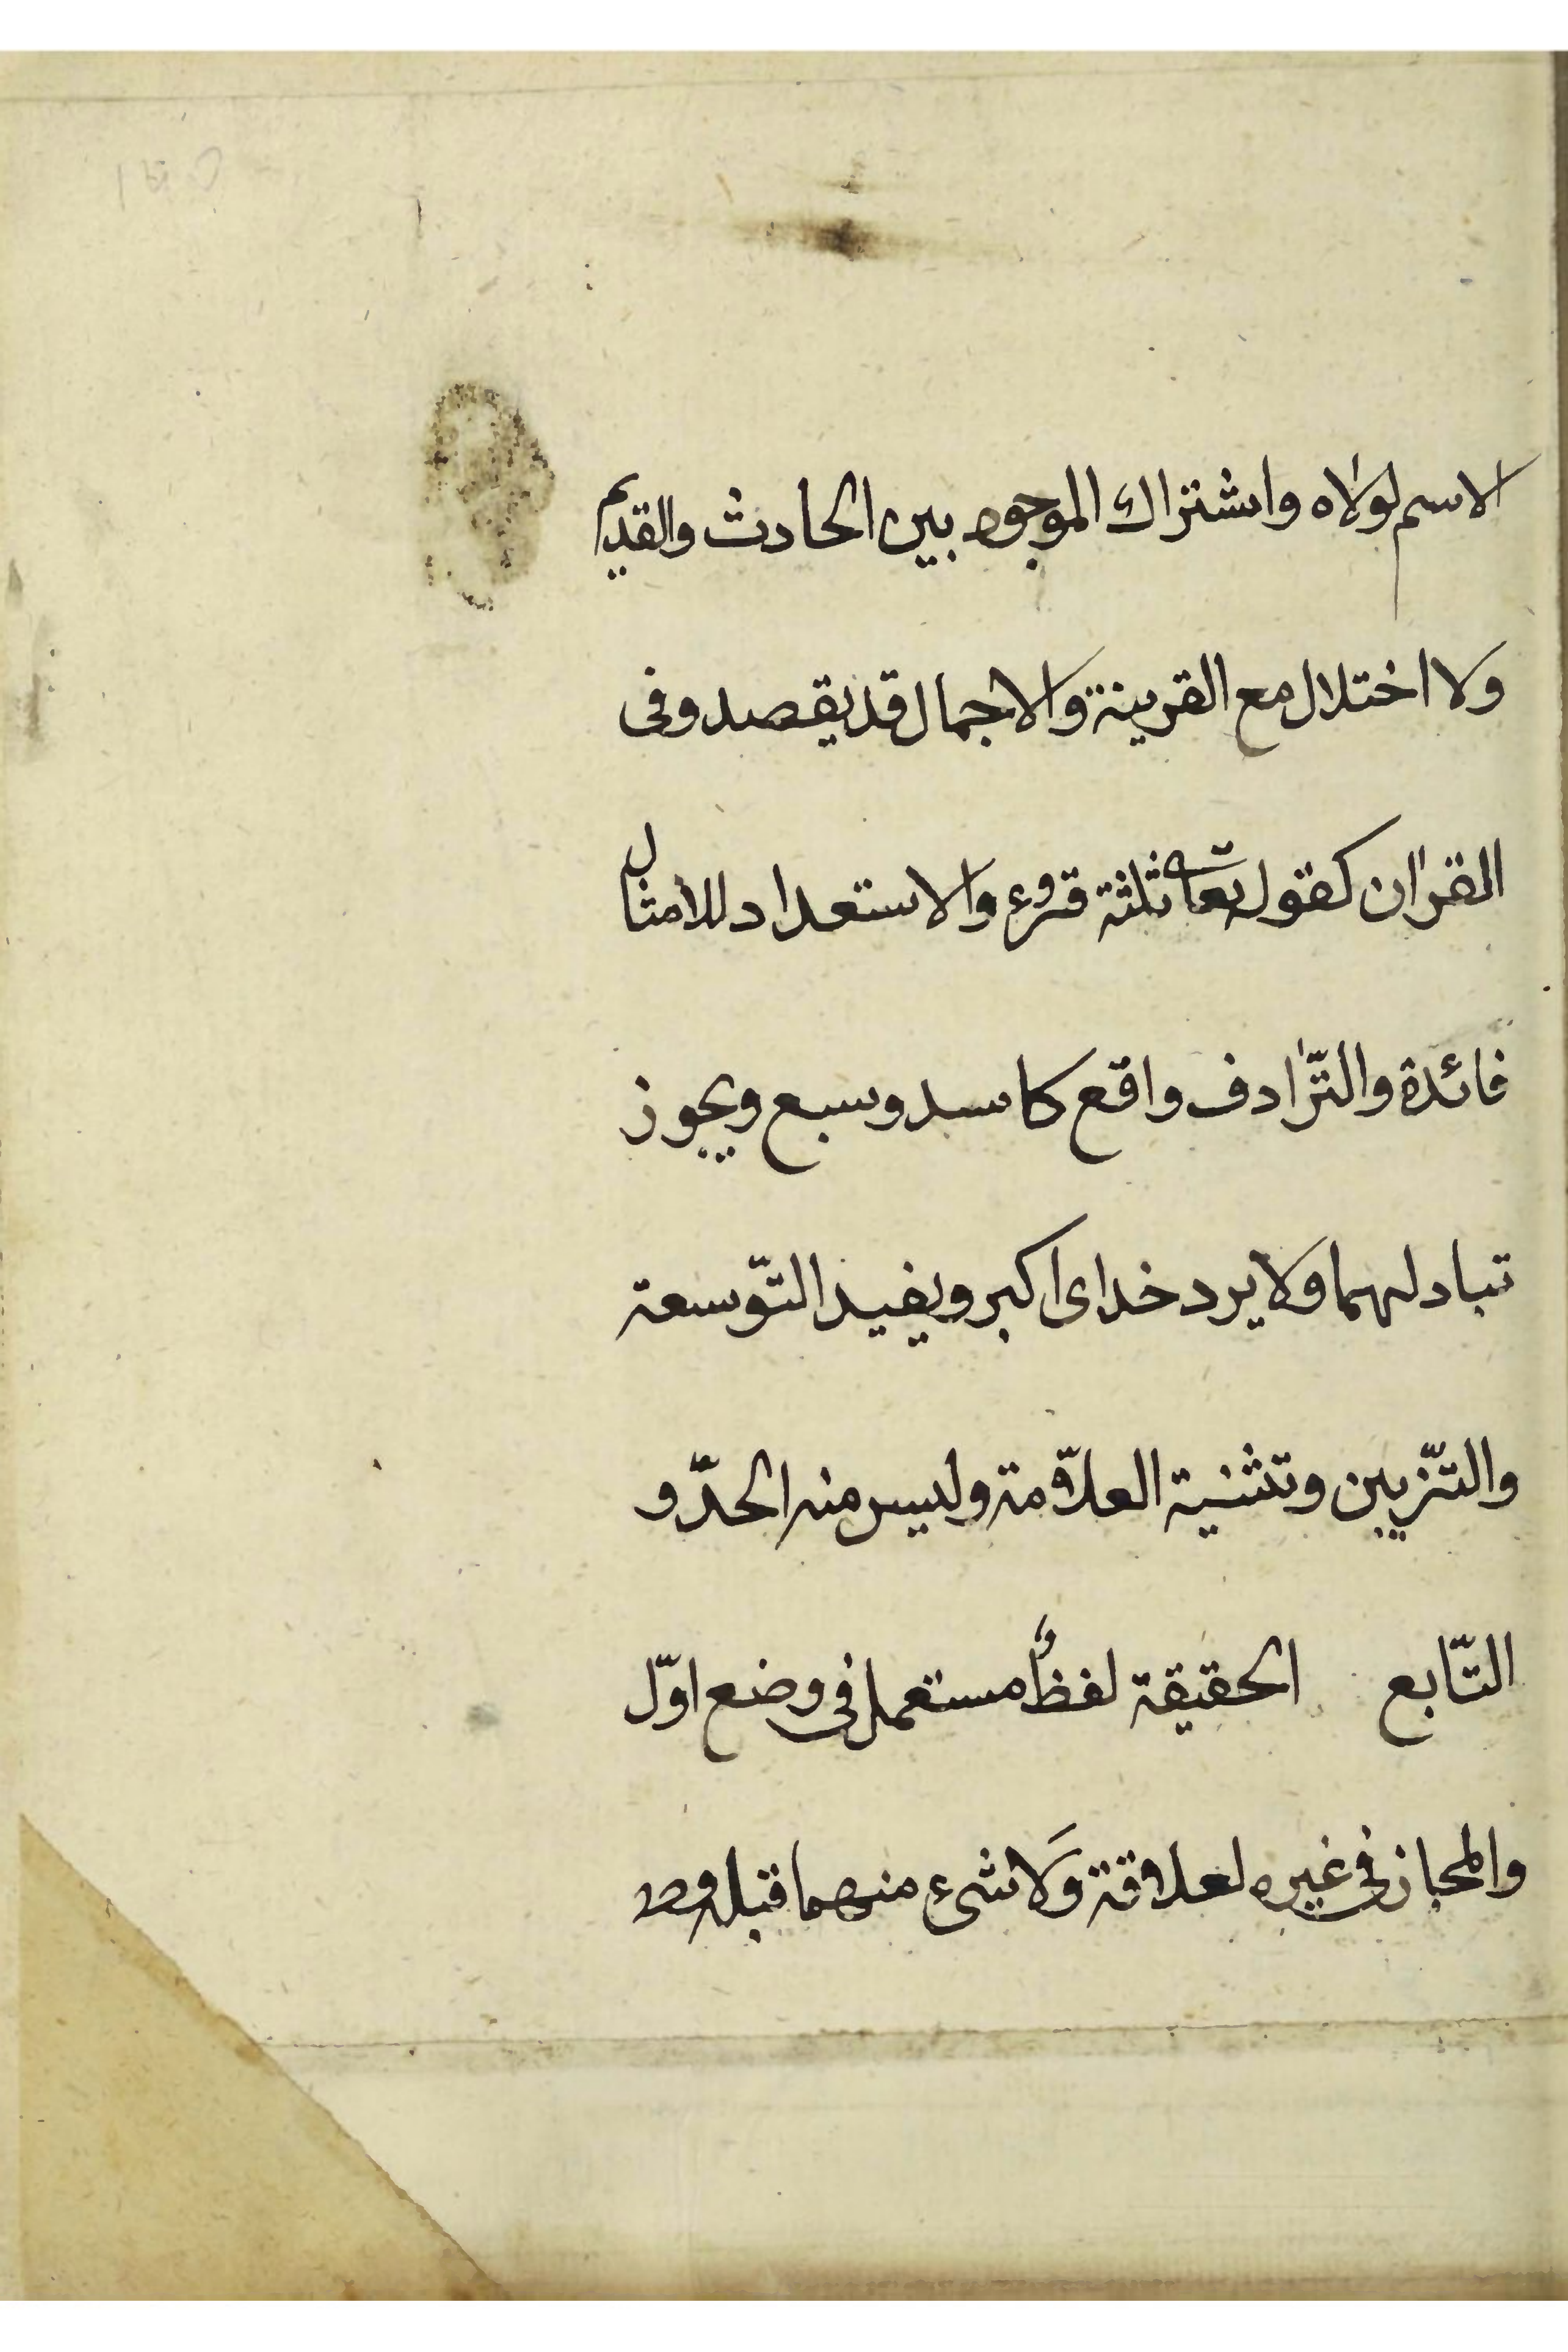 الاسم لولاه واشتراك الموجود بين الحادث والقديم
ولا اختلال مع القرينة والاجمال قد يقصد وفى
القرآن كقوله تعالى ثلثة قروء والاستعداد للامتثال
فائدة والتّرادف واقع كاسد وسبع ويجوز
تبادلهما ولا يرد خداى اكبر ويفيد التّوسعة
والتّزيين وتثنية العلاّمة وليس منه الحدّ و
التّابع الحقيقة لفظٌ مستعمل فى وضع اوّل
والمجاز فى غيره لعلاقة وَلا شىء منهما قبله